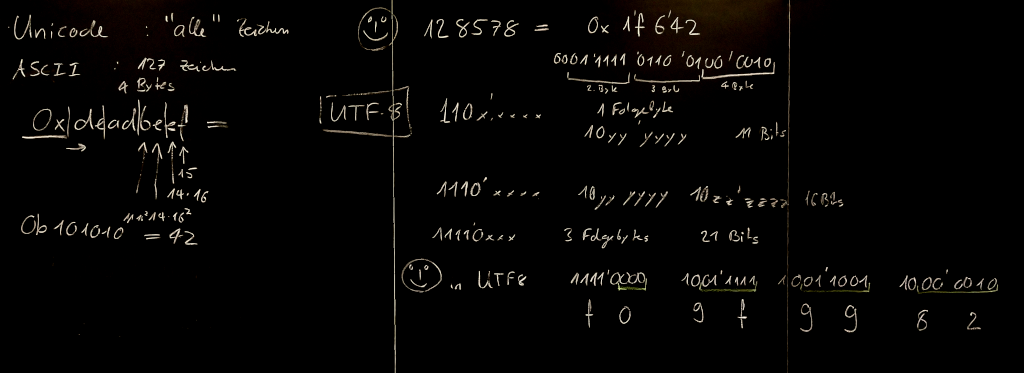 Unicode : "alle" Zeichen
ASCII : 127 Zeichen
4 Bytes
0x|de|ad|be|ef =
→
15
14·16
11·16² 14·16²
0b101010 = 42
128578 = 0x 1'f 6'42
0001'1111 '0110 '0100 '0010
2. Byte 3. Byte 4. Byte
UTF-8
110x'xxxx 1 Folgebyte
10yy'yyyy 11 Bits
1110'xxxx 10yy yyyy 10zz'zzzz 16 Bits
11110xxx 3 Folgebytes 21 Bits
in UTF8 1111'0000 1001'1111 1001'1001 1000'0010
f 0 9 f 9 9 8 2